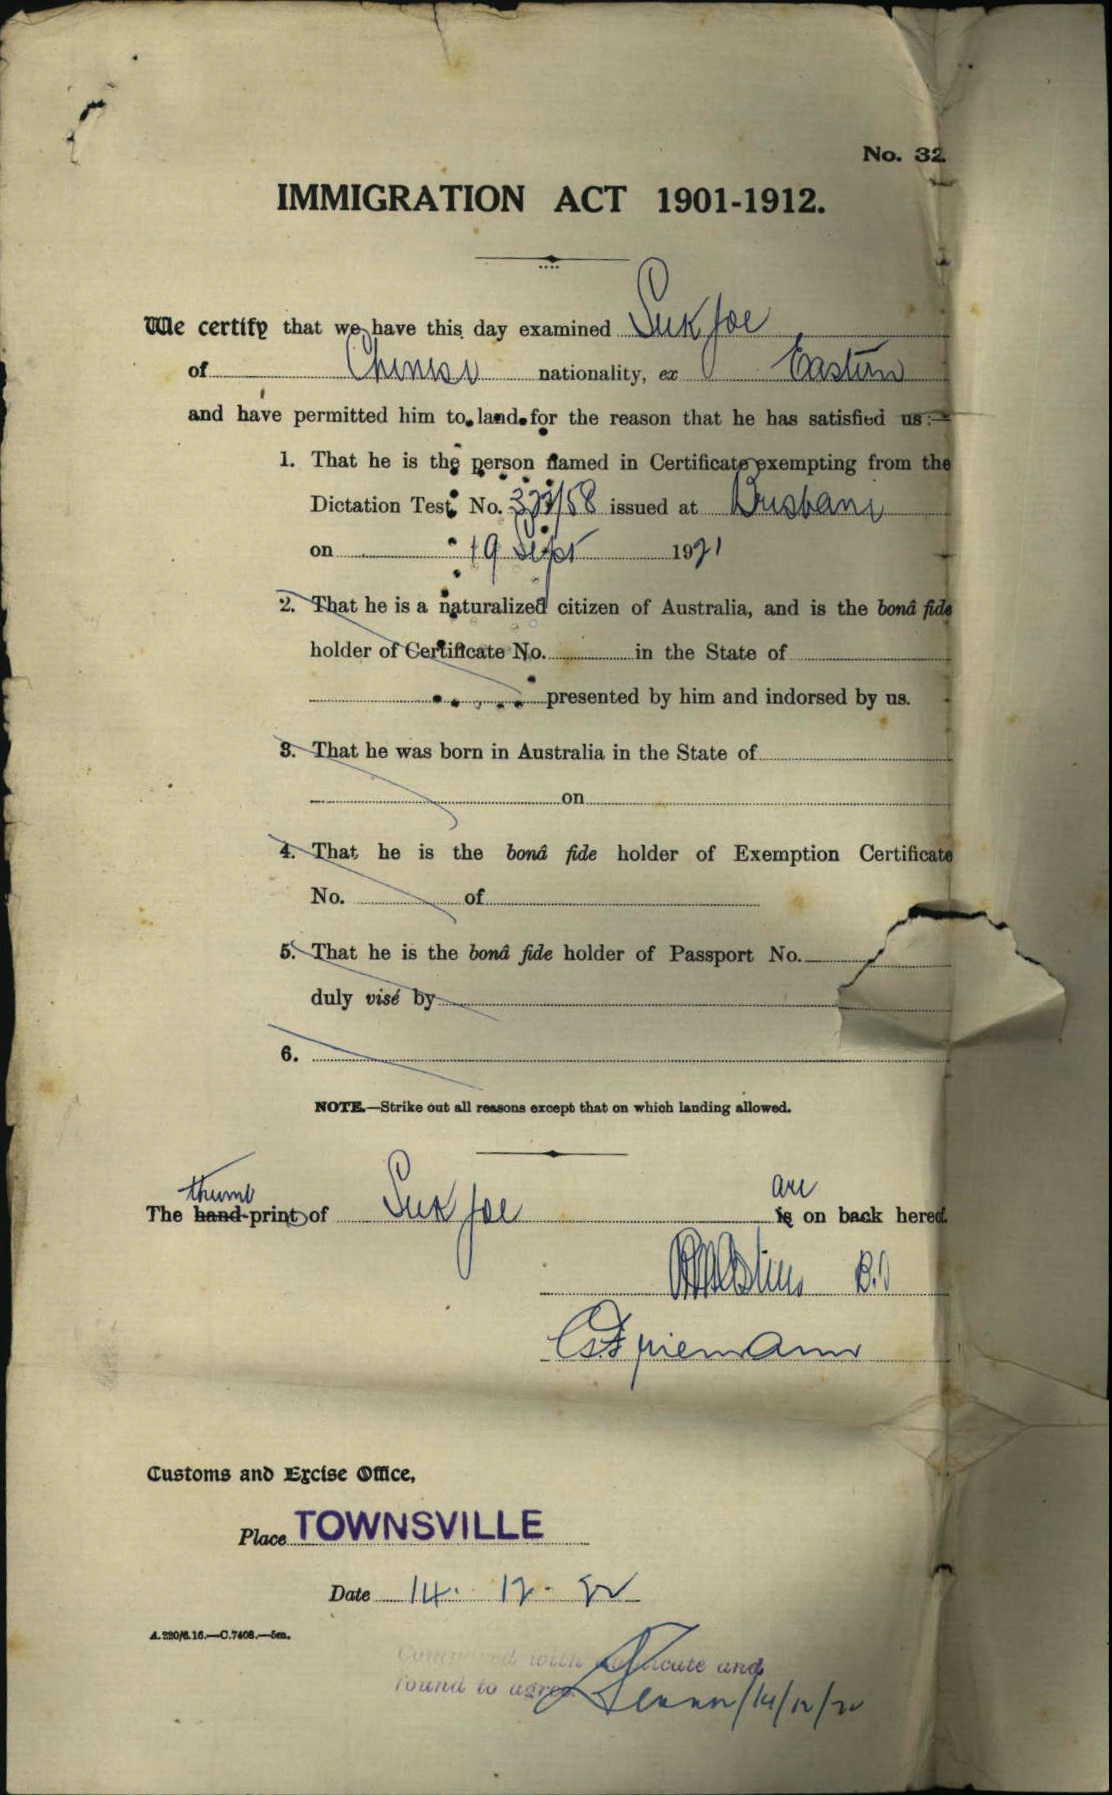 No. 32
IMMIGRATION ACT 1901-1912.
We certify that we have this day examined Suk Joe
of Chinese nationality, ex Eastern
and have permitted him to land for the reason that he has satisfied us :—
1. That he is the person named in Certificate exempting from the
Dictation Test, No. /58 issued at Brisbane
on 19 Sept 1921
2. That he is a naturalized citizen of Australia, and is the bonâ fide
holder of Certificate No. in the State of
presented by him and indorsed by us.
3. That he was born in Australia in the State of
on
4. That he is the bonâ fide holder of Exemption Certificate
No. of
5. That he is the bonâ fide holder of Passport No.
duly visé by
6.
NOTE.—Strike out all reasons except that on which landing allowed.
thumb are
The hand-print of Suk Joe is on back hereof.
Customs and Excise Office,
Place TOWNSVILLE
Date 14. 12. 22
A.220/6.16.—C.7408.—5m.
Compared with duplicate and
found to agree
14/12/22